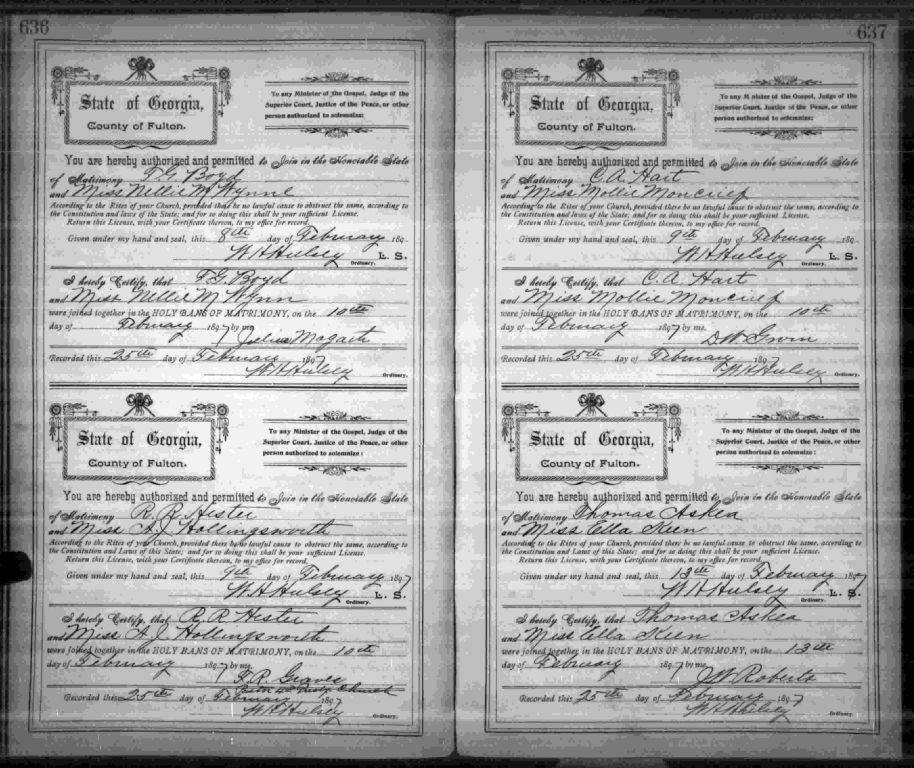 636
State of Georgia,
County of Fulton.
To any Minister of the Gospel, Judge of the
Superior Court, Justice of the Peace, or other
person authorized to solemnize:
You are hereby authorized and permitted to Join in the Honorable State
of Matrimony F. G. Boyd
and Miss Nellie M Wynne
According to the Rites of your Church, provided there be no lawful cause to obstruct the same, according to
the Constitution and laws of the State; and for so doing this shall be your sufficient License.
Return this License, with your Certificate thereon, to my office for record.
Given under my hand and seal, this 8th day of February 189
W. H. Hulsey L. S.
Ordinary.
I hereby Certify, that F. G. Boyd
and Miss Nellie M Wynn
were joined together in the HOLY BANS OF MATRIMONY, on the 10th
day of February 1897 by me
Julius Magath
Recorded this 25th day of February 1897
W. H. Hulsey
Ordinary.
State of Georgia,
County of Fulton.
To any Minister of the Gospel, Judge of the
Superior Court, Justice of the Peace, or other
person authorized to solemnize:
You are hereby authorized and permitted to Join in the Honorable State
of Matrimony R. R. Hester
and Miss A. J. Hollingsworth
According to the Rites of your Church, provided there be no lawful cause to obstruct the same, according to
the Constitution and Laws of this State; and for so doing this shall be your sufficient License.
Return this License, with your Certificate thereon, to my office for record.
Given under my hand and seal, this 9th day of February 1897
W. H. Hulsey L. S.
Ordinary.
I hereby Certify, that R. R Hester
and Miss A. J. Hollingsworth
were joined together in the HOLY BANS OF MATRIMONY, on the 10th
day of February 1897 by me
F. R. Graves
Church
Recorded this 25th day of February 1897
W. H. Hulsey
Ordinary.
637
State of Georgia,
County of Fulton.
To any Minister of the Gospel, Judge of the
Superior Court, Justice of the Peace, or other
person authorized to solemnize:
You are hereby authorized and permitted to Join in the Honorable State
of Matrimony C. A. Hart
and Miss Mollie Moncrief
According to the Rites of your Church, provided there be no lawful cause to obstruct the same, according to
the Constitution and laws of the State; and for so doing this shall be your sufficient License.
Return this License, with your Certificate thereon, to my office for record.
Given under my hand and seal, this 9th day of February 189
W. H. Hulsey L. S.
Ordinary.
I hereby Certify, that C. A. Hart
and Miss Mollie Moncrief
were joined together in the HOLY BANS OF MATRIMONY, on the 10th
day of February 1897 by me.
D. W. Gwin
Recorded this 25th day of February 1897
W. H. Hulsey
Ordinary.
State of Georgia,
County of Fulton.
To any Minister of the Gospel, Judge of the
Superior Court, Justice of the Peace, or other
person authorized to solemnize:
You are hereby authorized and permitted to Join in the Honorable State
of Matrimony Thomas Askea
and Miss Ella Keen
According to the Rites of your Church, provided there be no lawful cause to obstruct the same, according to
the Constitution and laws of this State; and for so doing this shall be your sufficient License.
Return this License, with your Certificate thereon, to my office for record.
Given under my hand and seal, this 13th day of February 1897
W. H. Hulsey L. S.
Ordinary.
I hereby Certify, that Thomas Askea
and Miss Ella Keen
were joined together in the HOLY BANS OF MATRIMONY, on the 13th
day of February 1897 by me
J. W. Roberts
Recorded this 25th day of February 1897
W. H. Hulsey
Ordinary.